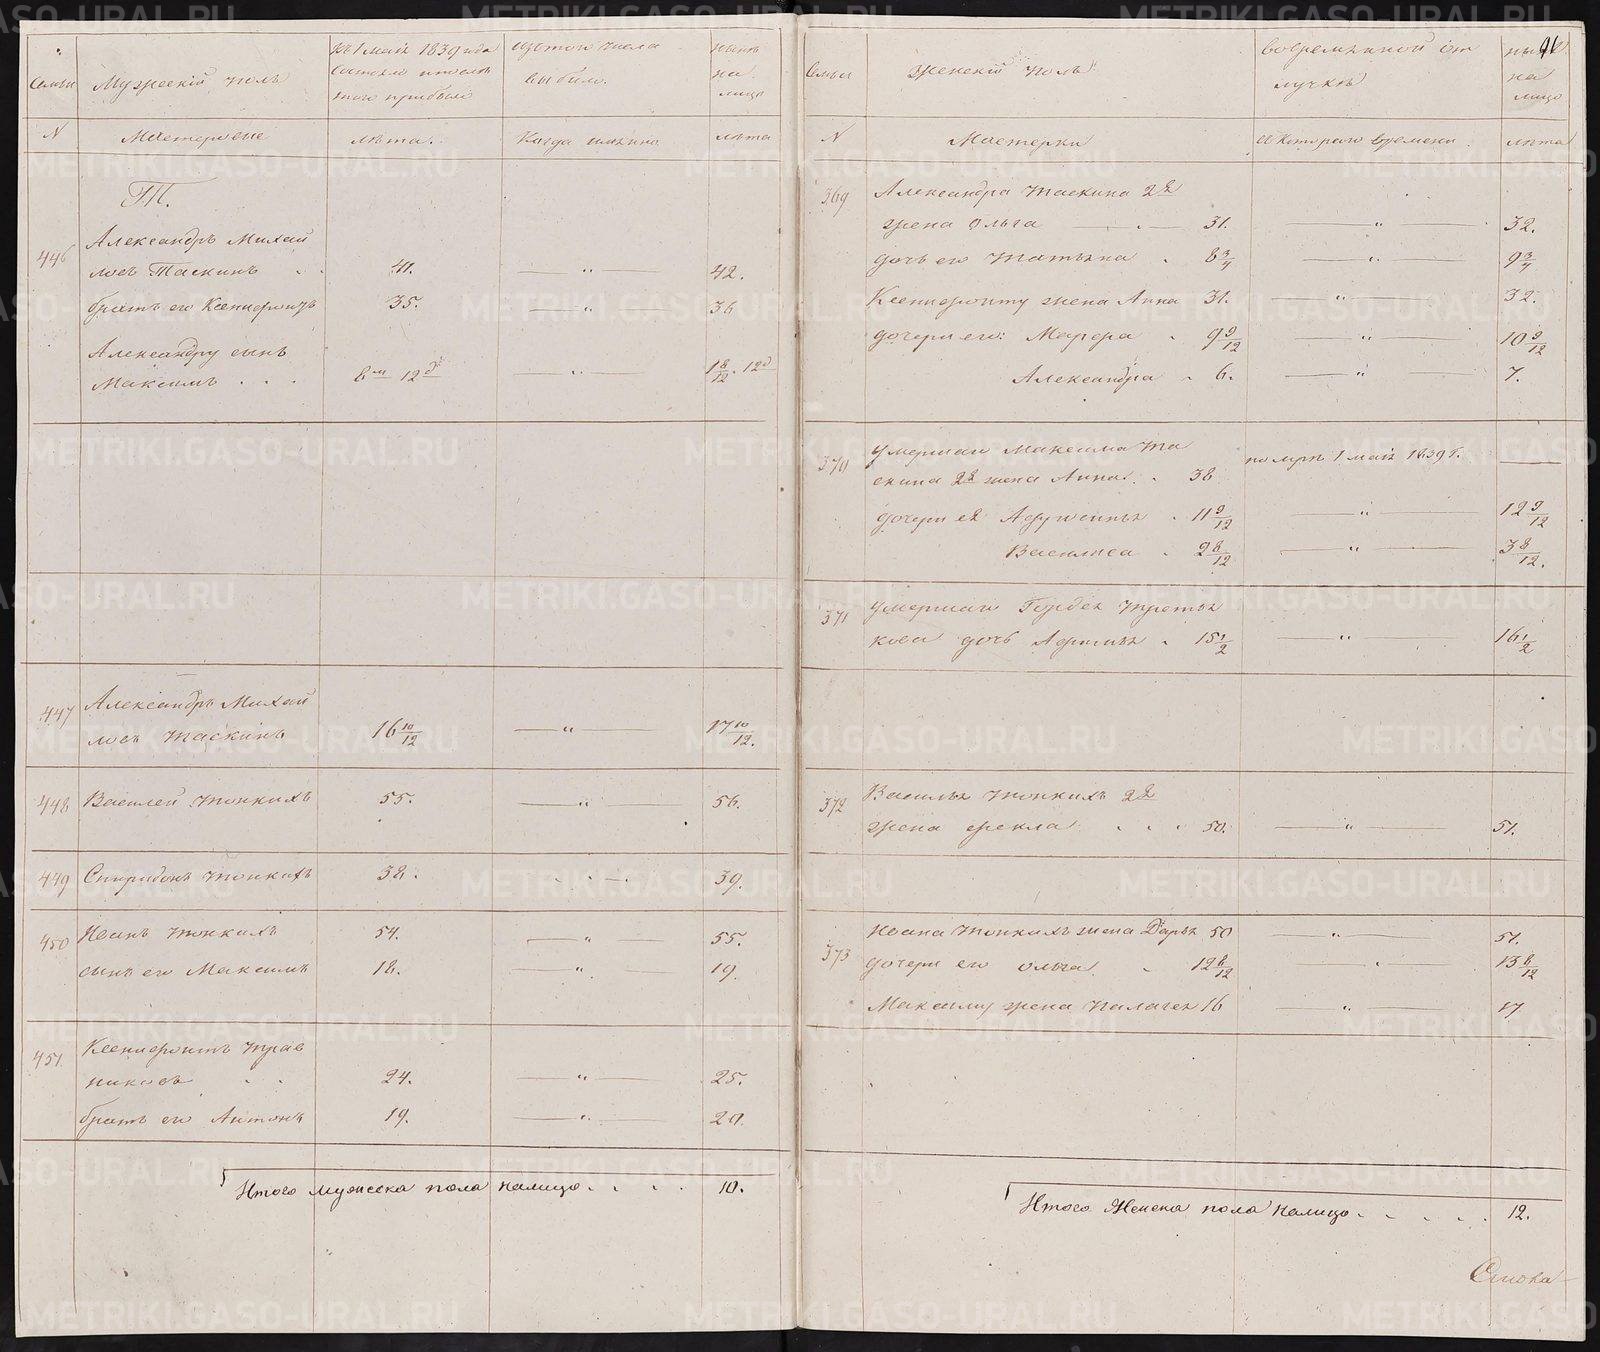 Семьи
Мужескій полъ
Къ 1 маія 1839 года
состояло и после
того прибыло
Изъ того числа
выбыло.
нынѣ
на
лицо
N
Мастеровые
лѣта.
Когда именно
лѣта
Т.
446
Александръ Михай
ловъ Таскинъ . . 41. — " — 42.
братъ его Ксенофонтъ 35. — " — 36
Александру сынъ
Максимъ . . . 8м 12д — " — 1 8/12. 12д
447
Александръ Михай
ловъ Таскинъ 16 10/12 — " — 17 10/12.
448 Василей Тонкихъ 55. — " — 56.
449 Спиридонъ Тонкихъ 38. 39.
450 Иванъ Тонкихъ 54. — " — 55.
сынъ его Максимъ 18. — " — 19.
451
Ксенофонтъ Трав
никовъ . . 24. — " — 25.
братъ его Антонъ 19. — " — 20.
Итого мужеска пола налицо . . . . 10.
91
Семьи
женскій полъ
во временной от
лучкѣ
нынѣ
на
лицо
N
Мастерки
съ котораго времени
лѣта
369 Александра Таскина 2я
жена Ольга — " — 31. — " — 32.
дочь его Татьяна . 8 3/4 — " — 9 3/4
Ксенофонту жена Анна 31. — " — 32.
дочери его: Марфа . 9 9/12 — " — 10 9/12
Александра . 6. — " — 7.
370 Умершаго Максима Та
скина 2я жена Анна . 38 померла 1 маія 1839 г. —
дочери ея Афимья . 11 9/12 — " — 12 9/12
Василиса . 2 8/12 — " — 3 8/12.
371 Умершаго Гордея Третья
кова дочь Афимья . 15 1/2 — " — 16 1/2
372 Василья Тонкихъ 2я
жена Фекла . . . 50. — " — 51.
373 Ивана Тонкихъ жена Дарья 50 — " — 51.
дочери его Ольга . 12 8/12 — " — 13 8/12
Максиму жена Палагея 16 — " — 17
Итого Женска пола налицо . . . . . 12.
METRIKI.GASO-URAL.RU